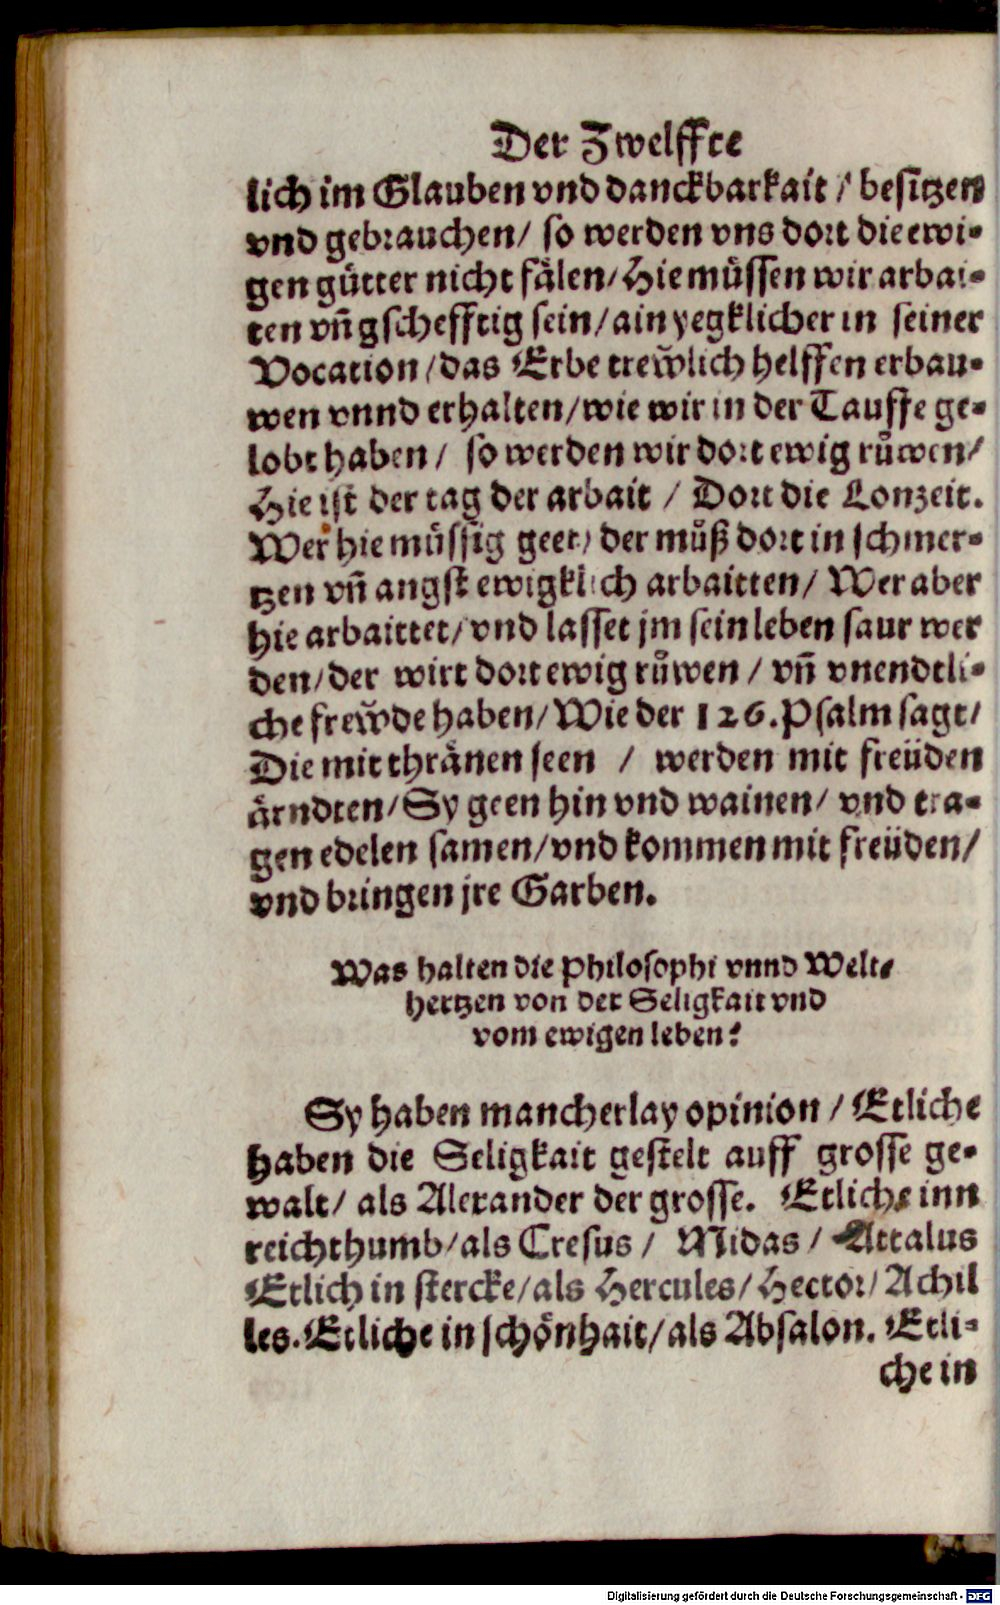 Der Zwelffte
lich im Glauben vnd danckbarkait / besitzen
vnd gebrauchen / so werden vns dort die ewi-
gen gütter nicht fälen / Hie müssen wir arbai-
ten vñ gschefftig sein / ain yegklicher in seiner
Vocation / das Erbe trew̆lich helffen erbau-
wen vnnd erhalten / wie wir in der Tauffe ge-
lobt haben / so werden wir dort ewig růwen /
Hie ist der tag der arbait / Dort die Lonzeit.
Wer hie müssig geet / der můß dort in schmer-
tzen vñ angst ewigklich arbaitten / Wer aber
hie arbaittet / vnd lasset jm sein leben saur wer
den / der wirt dort ewig růwen / vñ vnendtli-
che frew̆de haben / Wie der 126. Psalm sagt /
Die mit thränen seen / werden mit freüden
ärndten / Sy geen hin vnd wainen / vnd tra-
gen edelen samen / vnd kommen mit freüden /
vnd bringen jre Garben.
Was halten die Philosophi vnnd Welt-
hertzen von der Seligkait vnd
vom ewigen leben?
Sy haben mancherlay opinion / Etliche
haben die Seligkait gestelt auff grosse ge-
walt / als Alexander der grosse. Etliche inn
reichthumb / als Cresus / Midas / Attalus
Etlich in stercke / als Hercules / Hector / Achil
les. Etliche in schönhait / als Absalon. Etli-
che in
Digitalisierung gefördert durch die Deutsche Forschungsgemeinschaft - DFG